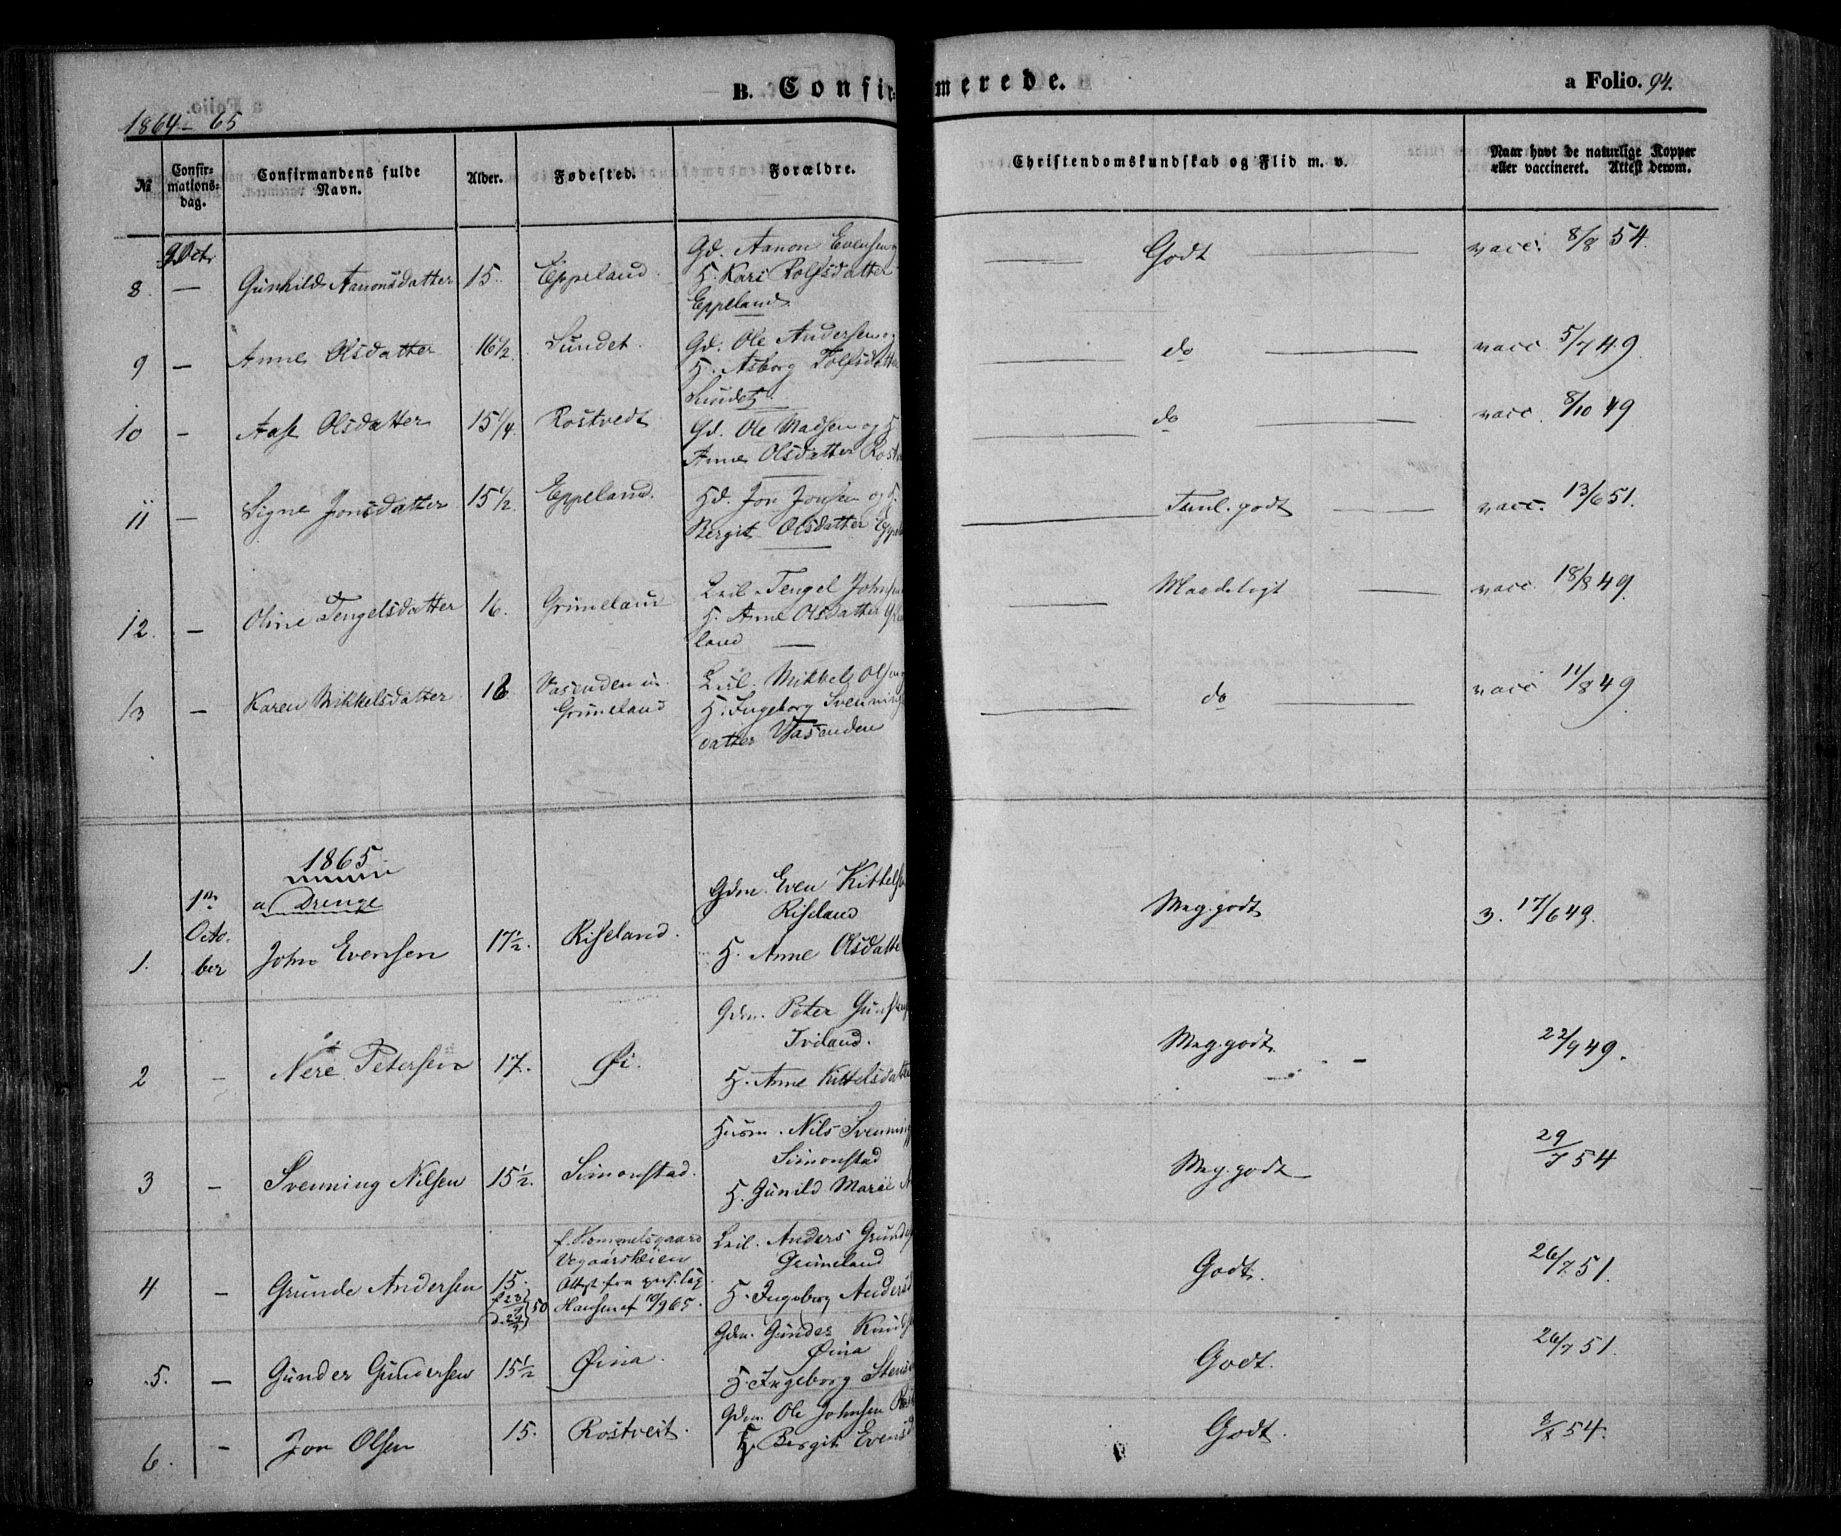 B. Confirmerede.
a Folio. 94.
1864-65
№
Confirmationsdag.
Confirmandens fulde Navn.
Alder.
Fødested.
Forældre.
Christendomskundskab og Flid m. v.
Naar havt de naturlige Kopper eller vaccineret. Attest derom.
8. 9 Oct. — Gunhild Aanonsdatter 15. Eppeland. Gd. Aanon Evensen og
H. Kari Rolfsdatter
Eppeland
Godt vacc. 8/8 54.
9 — Anne Olsdatter 16 1/2. Sundet. Gd. Ole Andersen og
H. Asborg Tolfsdatter
Sundet
do vacc 5/7 49
10 — Aase Olsdatter 15 1/4. Rostvedt Gd. Ole Madsen og H
Anne Olsdatter Rost
do vacc. 8/10 49
11 — Signe Jonsdatter 15 1/2. Eppeland. Hd. Jon Jonsen og H.
Bergit Olsdatter Eppel
Teml. godt vacc. 13/6 51.
12. — Oline Tengelsdatter 16. Grimeland Leil. Tengel Johnsen
H. Anne Olsdatter Gri
land —
Maadeligt vacc. 18/8 49.
13 — Karen Mikkelsdatter 16 Vasenden u.
Grimeland
Leil. Mikkel Olsen
H. Ingeborg Svennings
datter Vasenden
do vacc 11/8 49
1865
a) Drenge
1. 1ste October John Evensen 17 1/2. Riseland. Gdm. Even Kittels
Riseland
H. Anne Olsdatte
Meg. godt 3. 17/6 49.
2 — Nere Petersen 17. Øi. Gdm. Peter
Tviland.
H. Anne Kittelsdatte
Meg. godt. — 22/9 49.
3 — Svenning Nilsen 15 1/2. Simonstad. Husm. Nils Svenning
Simonstad
H. Gunild Marie
Meg. godt 29/7 54
4 — Grunde Andersen 15.
f. Hommelsgaard
Vegaarsheien
Attest fra
Hansen af 10/9 65.
Leil. Anders Grunde
Grimeland
H. Ingeborg Anders
Godt. 26/7 51.
5. — Gunder Gundersen 15 1/2 Øina. Gdm. Gunder Knuds
Øina
H. Ingeborg Stens
Godt. 26/7 51.
6. — Jon Olsen 15. Rostveit. Gdm. Ole Johnsen
H. Bergit Evensd
Godt. 8/8 54.